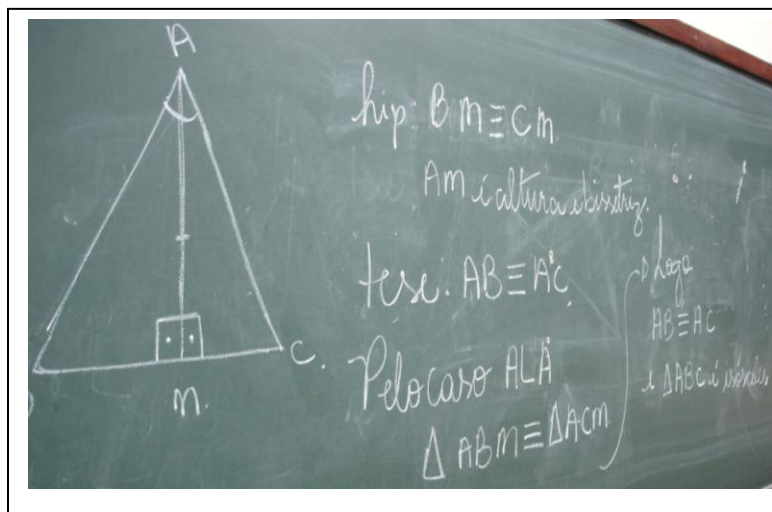 A
C.
M.
hip: BM≡CM.
AM é altura e bissetriz.
tese: AB≡AC
Pelo caso ALA
Δ ABM≡ΔACM
Logo
AB≡AC
e ΔABC é isósceles